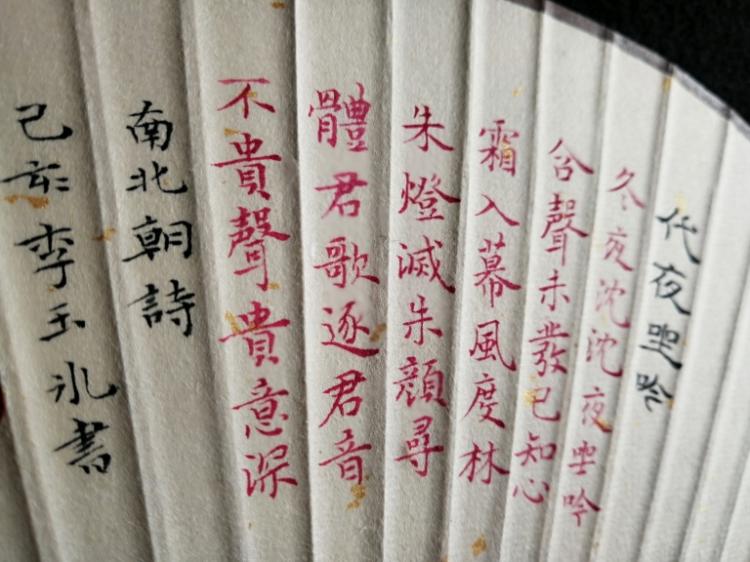 代夜坐吟
冬夜沈沈夜坐吟
含聲未發已知心
霜入幕風度林
朱燈滅朱顔尋
體君歌逐君音
不貴聲貴意深
南北朝詩
己亥李玉冰書